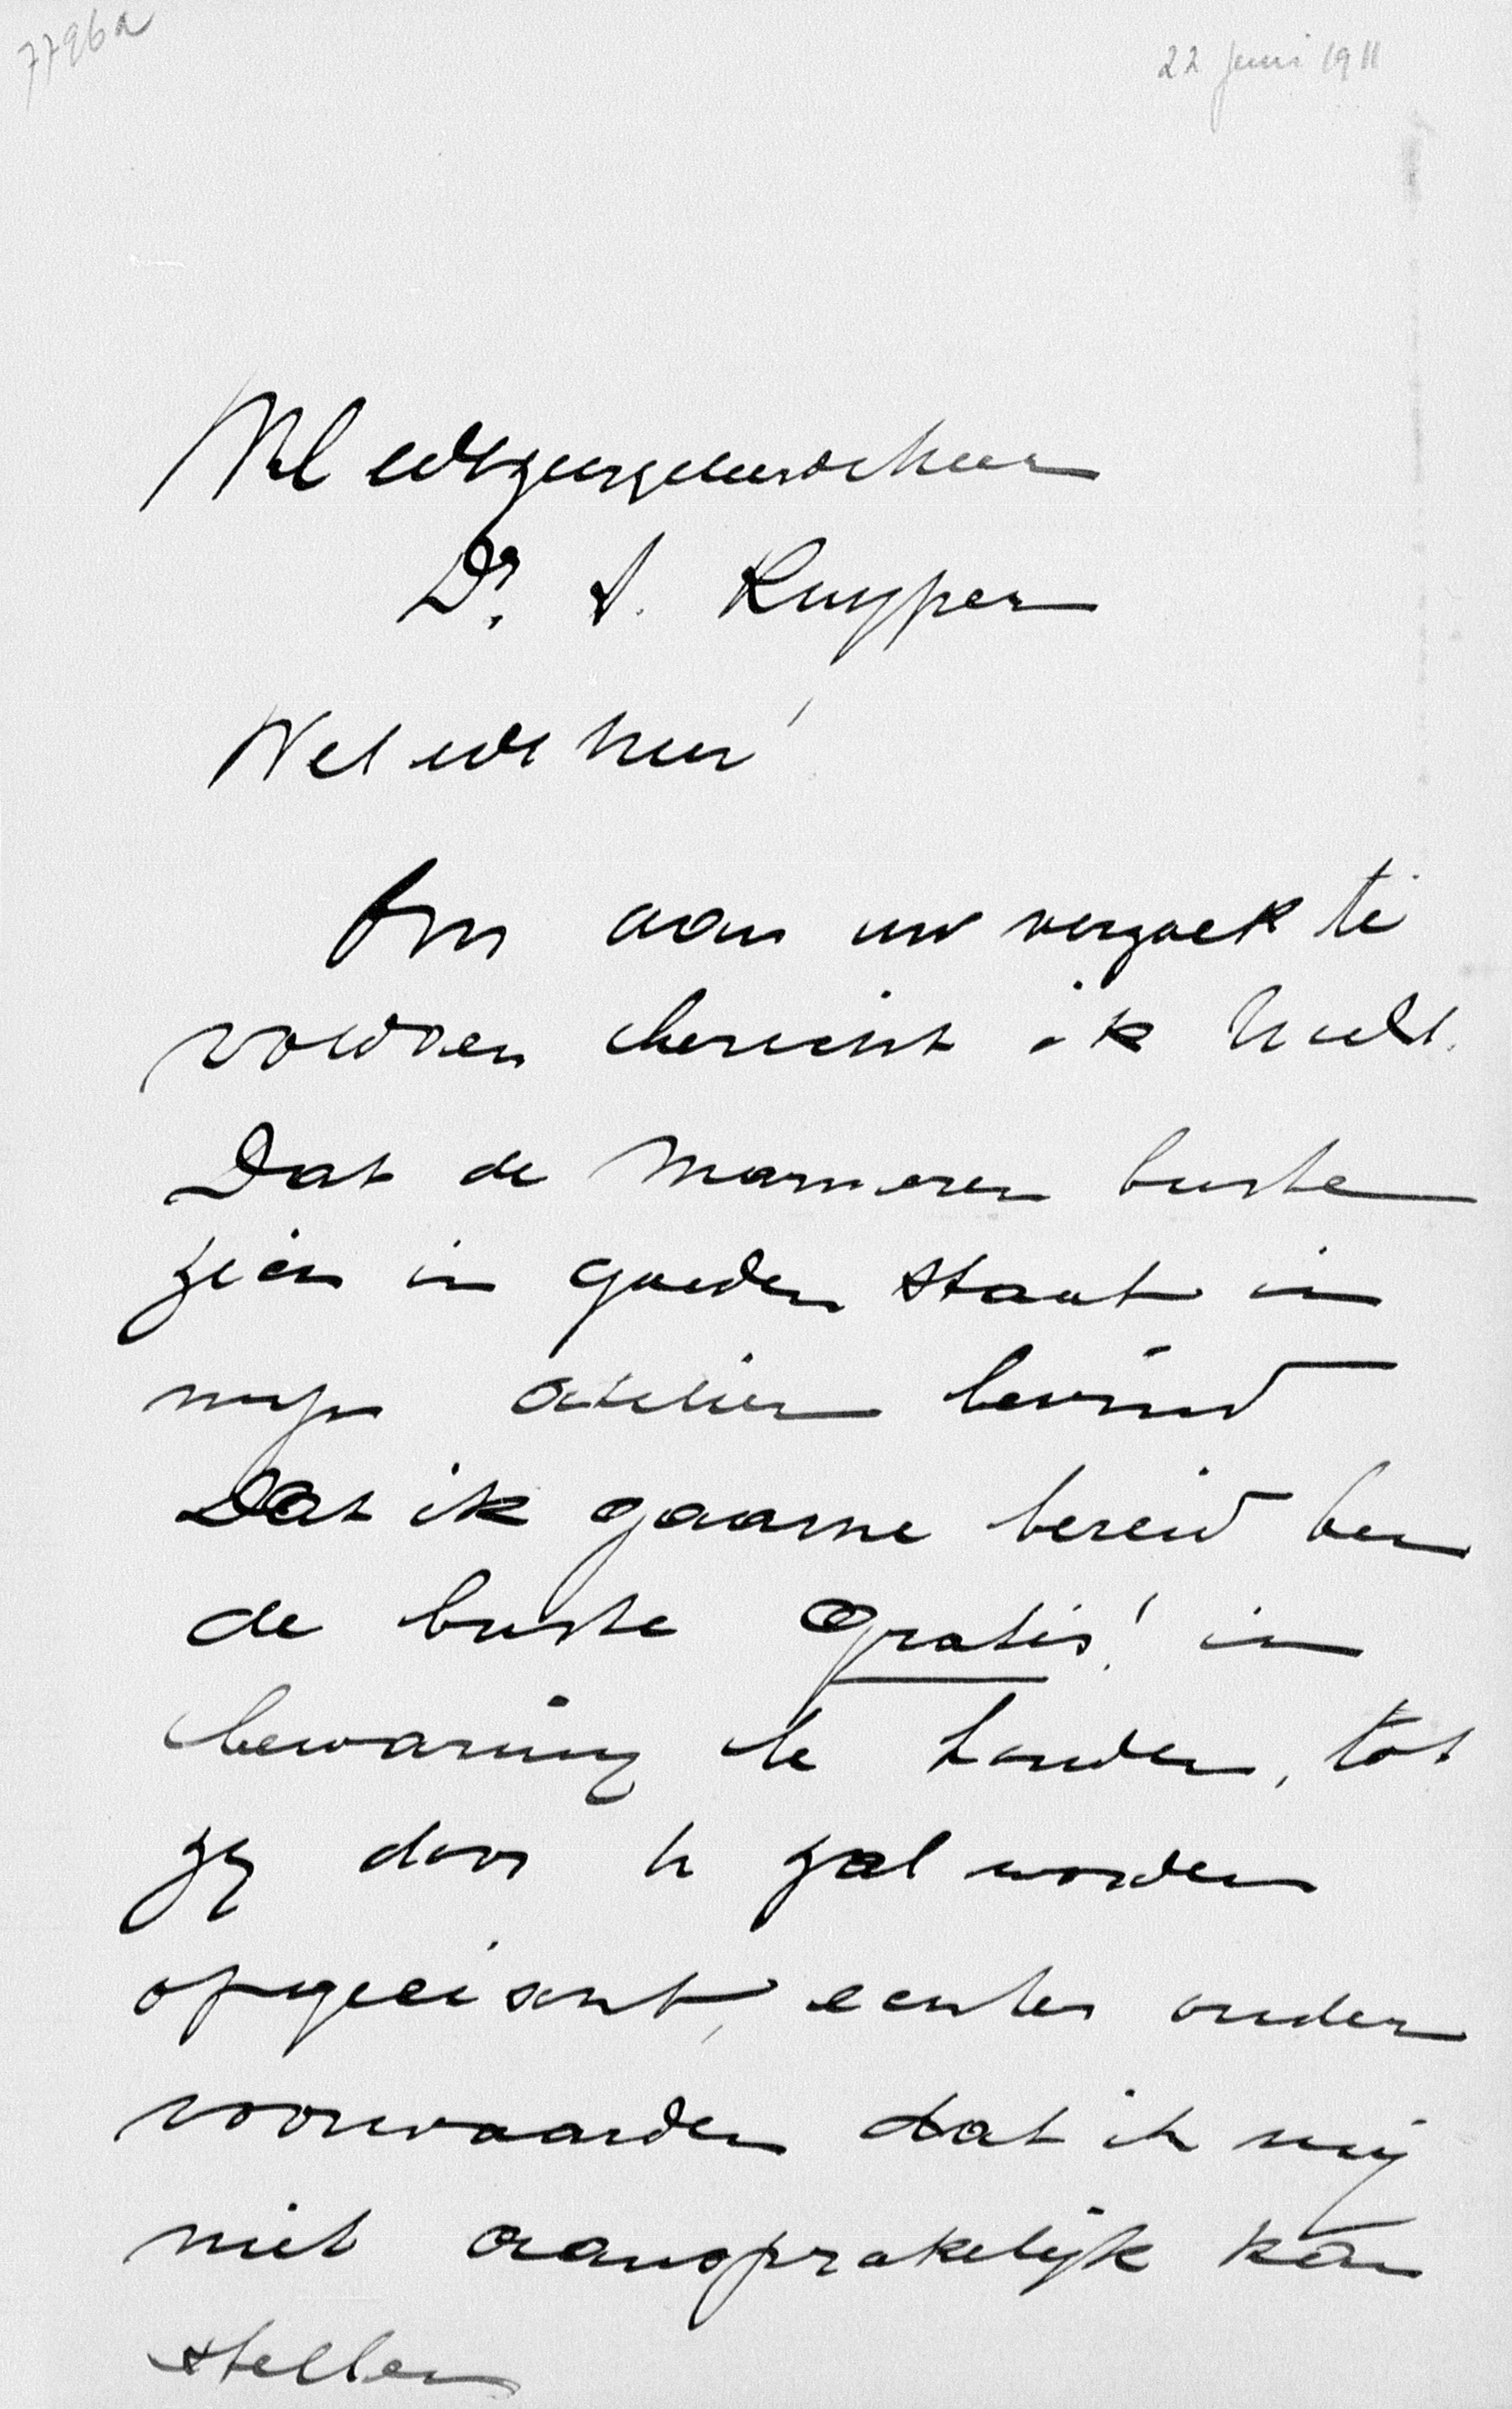 7796a
22 juni 1911
Wel edelzeergeleerde heer
Dr. A. Kuyper
Wel edele heer!
Om aan uw verzoek te
voldoen bericht ik UwEd.
Dat de marmeren buste
zien in goeden staat in
mijn atelier bevind
Dat ik gaarne bereid ben
de buste gratis! in
bewaring te houden, tot
zij door U zal worden
opgeëischt, echter onder
voorwaarden dat ik mij
niet aansprakelijk kan
stellen